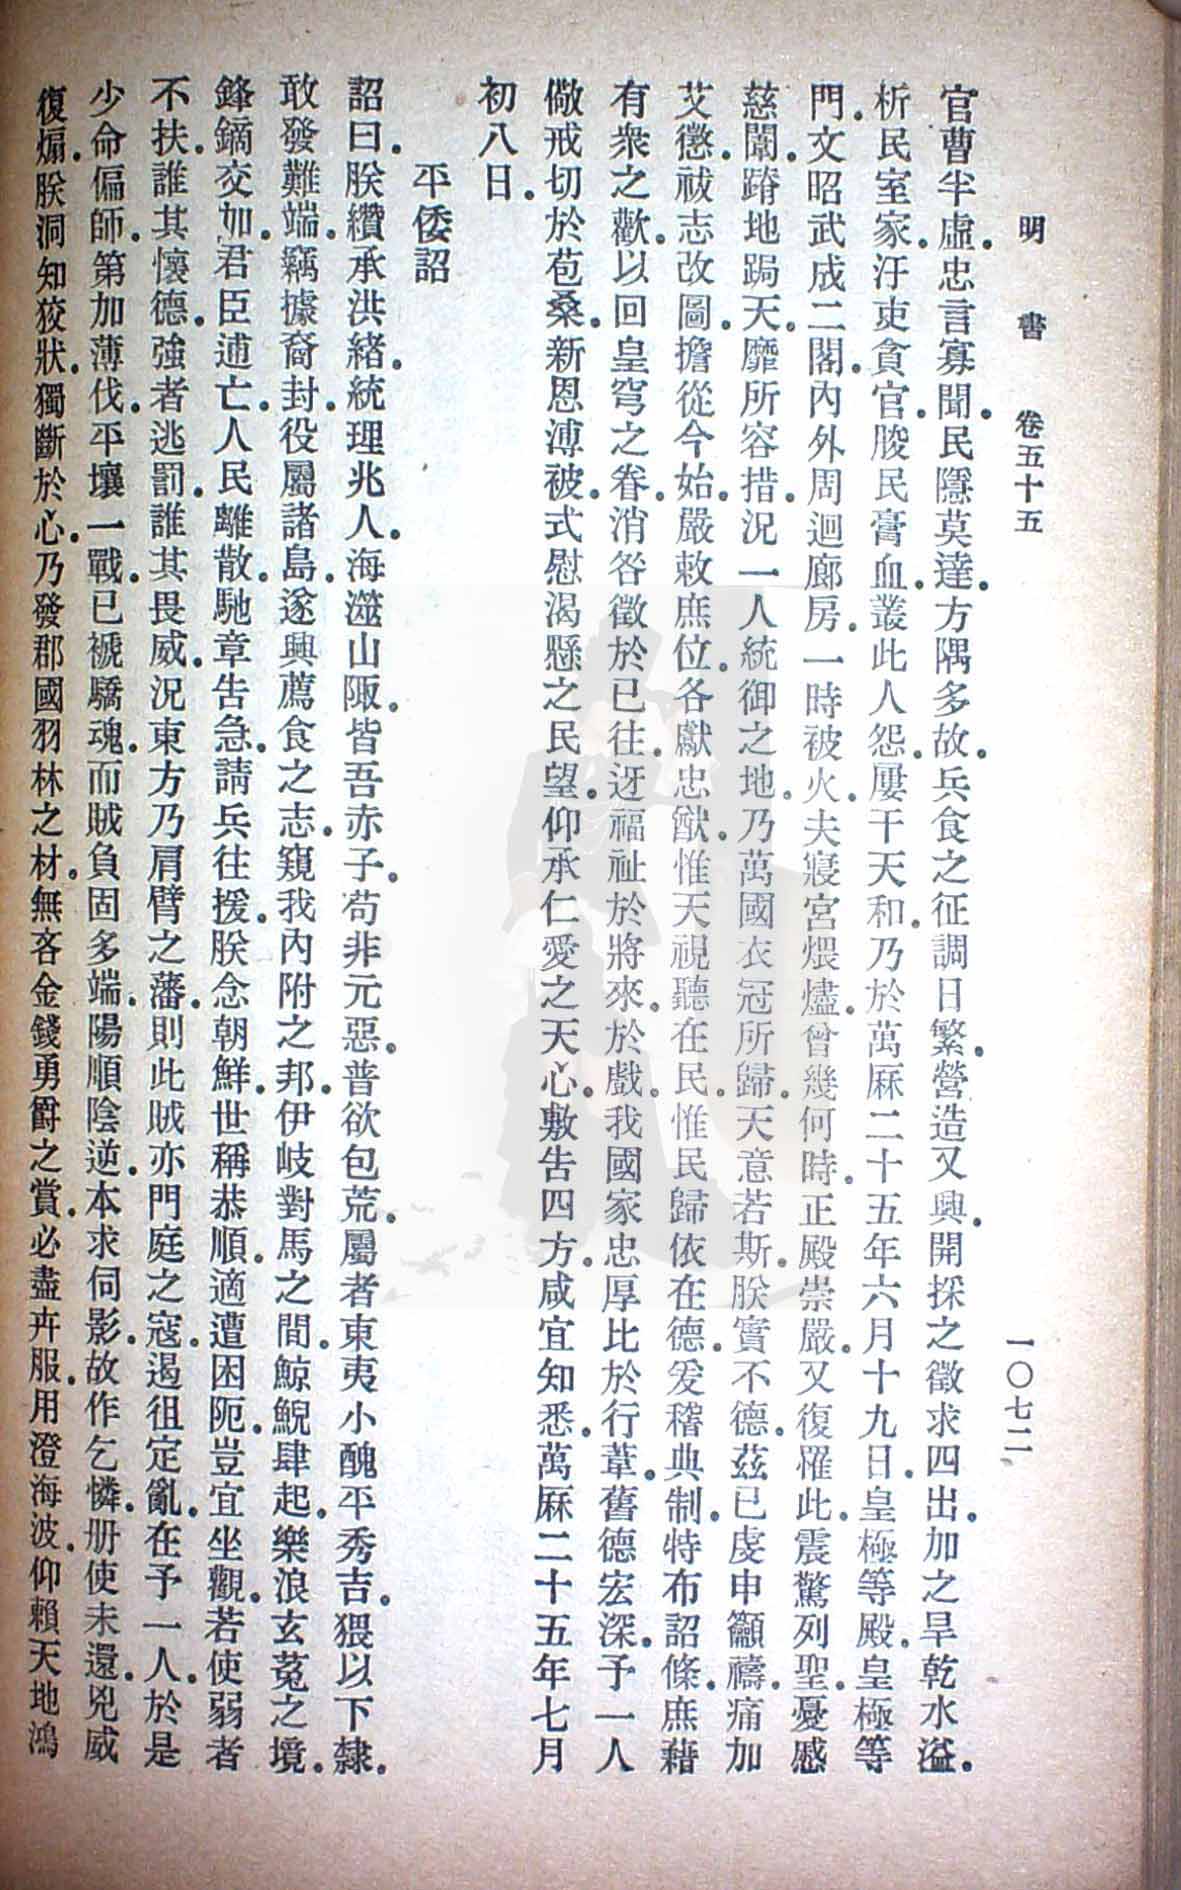 明書　卷五十五　一〇七二
官曹半虛。忠言寡聞。民隱莫達。方隅多故。兵食之征調日繁。營造又興。開採之徵求四出。加之旱乾水溢。
析民室家。汙吏貪官。朘民膏血。叢此人怨。屢干天和。乃於萬厤二十五年六月十九日。皇極等殿。皇極等
門。文昭武成二閣。內外周迴廊房。一時被火。夫寢宮煨燼。曾幾何時。正殿崇嚴。又復罹此。震驚列聖。憂慼
慈闈。蹐地跼天。靡所容措。況一人統御之地。乃萬國衣冠所歸。天意若斯。朕實不德。茲已虔申籲禱。痛加
艾懲。祓志改圖。擔從今始。嚴敕庶位。各獻忠猷。惟天視聽在民。惟民歸依在德。爰稽典制。特布詔條。庶藉
有衆之歡。以回皇穹之眷。消咎徵於已往。迓福祉於將來。於戲。我國家忠厚比於行葦。舊德宏深。予一人
儆戒切於苞桑。新恩溥被。式慰渴懸之民望。仰承仁愛之天心。敷告四方。咸宜知悉。萬厤二十五年七月
初八日。
平倭詔
詔曰。朕纘承洪緒。統理兆人。海澨山陬。皆吾赤子。苟非元惡。普欲包荒。屬者東夷小醜平秀吉。猥以下隸。
敢發難端。竊據裔封。役屬諸島。遂興薦食之志。窺我內附之邦。伊岐對馬之間。鯨鯢肆起。樂浪玄菟之境。
鋒鏑交加。君臣逋亡。人民離散。馳章告急。請兵往援。朕念朝鮮。世稱恭順。適遭困阨。豈宜坐觀。若使弱者
不扶。誰其懷德。強者逃罰。誰其畏威。況東方乃肩臂之藩。則此賊亦門庭之寇。遏徂定亂。在予一人。於是
少命偏師。第加薄伐。平壤一戰。已褫驕魂。而賊負固多端。陽順陰逆。本求伺影。故作乞憐。册使未還。兇威
復煽。朕洞知狡狀。獨斷於心。乃發郡國羽林之材。無吝金錢勇爵之賞。必盡卉服。用澄海波。仰賴天地鴻